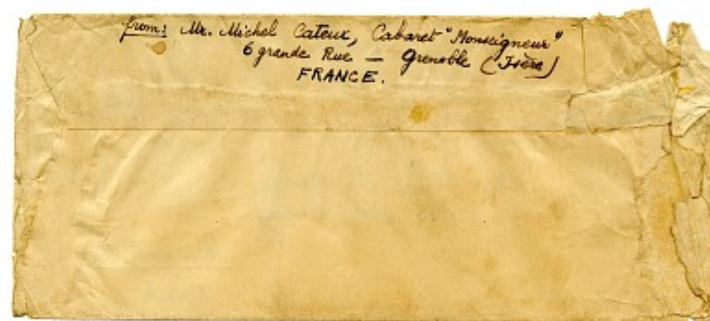 from: Mr. Michel Cateux, Cabaret "Monseigneur"
6 grande Rue — Grenoble (Isère)
FRANCE.